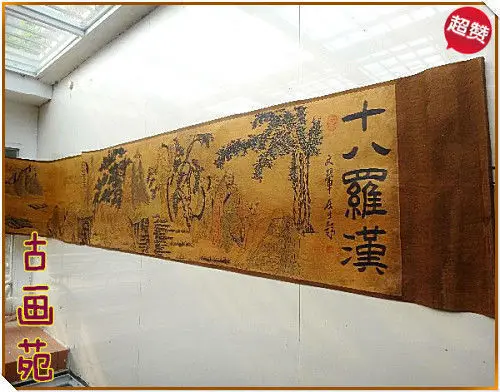 超赞
十八羅漢
古画苑